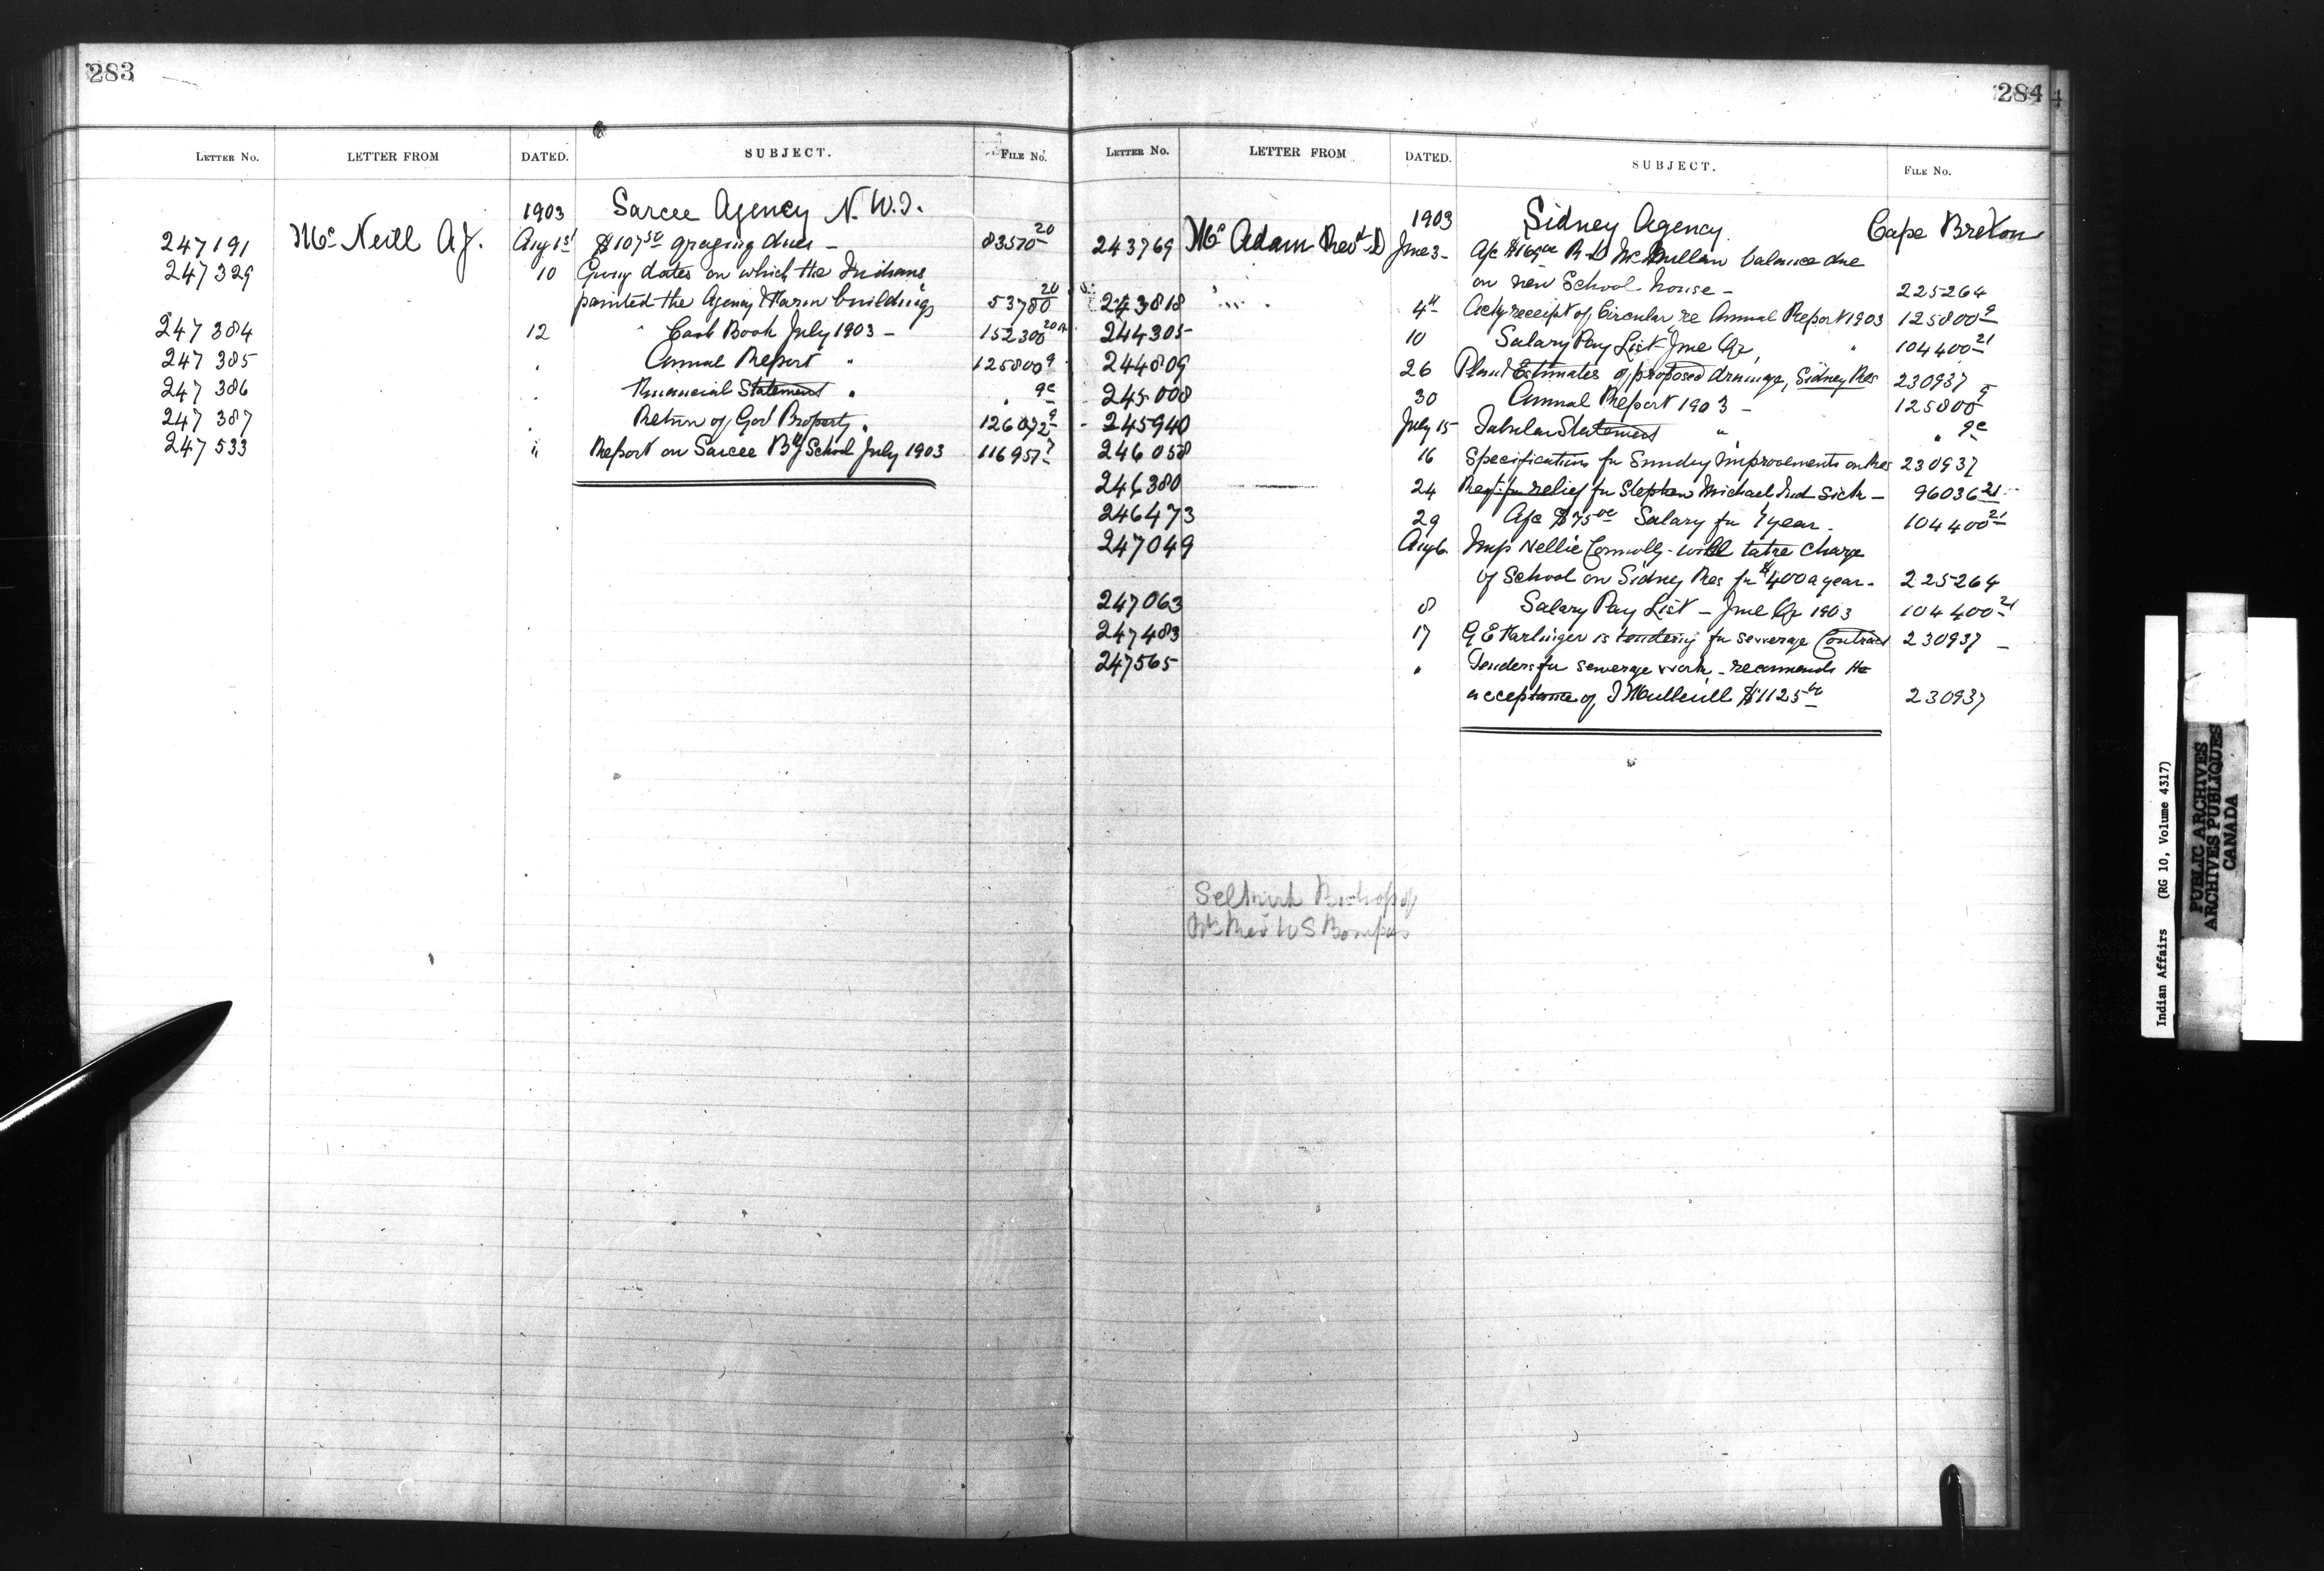 283
LETTER No. LETTER FROM DATED. SUBJECT. FILE No.
1903 Sarcee Agency N.W.T.
247191 McNeill A.J. Aug 1st $107.50 grazing dues — 83570-20
247329 10 Giving dates on which the Indians
painted the Agency & Farm buildings 53780 20
247384 12 " Cash Book July 1903 — 152300 20A
247385 . Annual Report " 125800 9
247386 . Financial Statement " " 9c
247387 . Return of Govt Property " 126072 9
247533 " Report on Sarcee Bdg School July 1903 116957 7
284
LETTER No. LETTER FROM DATED. SUBJECT. FILE No.
1903 Sidney Agency Cape Breton
243769 McAdam Revd D June 3 - A/c R D McMullan balance due
on new School house — 225264
243818 " 4th Ackg receipt of Circular re Annual Report 1903 125800 9
244305 10 Salary Pay List June Qr " 104400-21
244809 26 Plan & Estimates of proposed drainage, Sidney Res 230937
245008 30 Annual Report 1903 — 125800 9
245940 July 15 Tabular Statement " " 9c
246058 16 Specifications for Sundry Improvements on Res 230937
246380 24 Reqt for relief for Stephen Michael Ind Sick — 96036 21
246473 29 A/c $75.00 Salary for year. 104400 21
247049 Aug 6 Miss Nellie Connolly - will take charge
of School on Sidney Res for $400 a year - 225264
247063 8 Salary Pay List — June Qr 1903 104400-21
247483 17 G E is tendering for sewerage Contract 230937 —
247565 " Tenders for sewerage work - recommends the
acceptance of $1125.00 230937
Selkirk Bishop of
Rt Rev W S Bompas
Indian Affairs (RG 10, Volume 4317)
PUBLIC ARCHIVES
ARCHIVES PUBLIQUES
CANADA